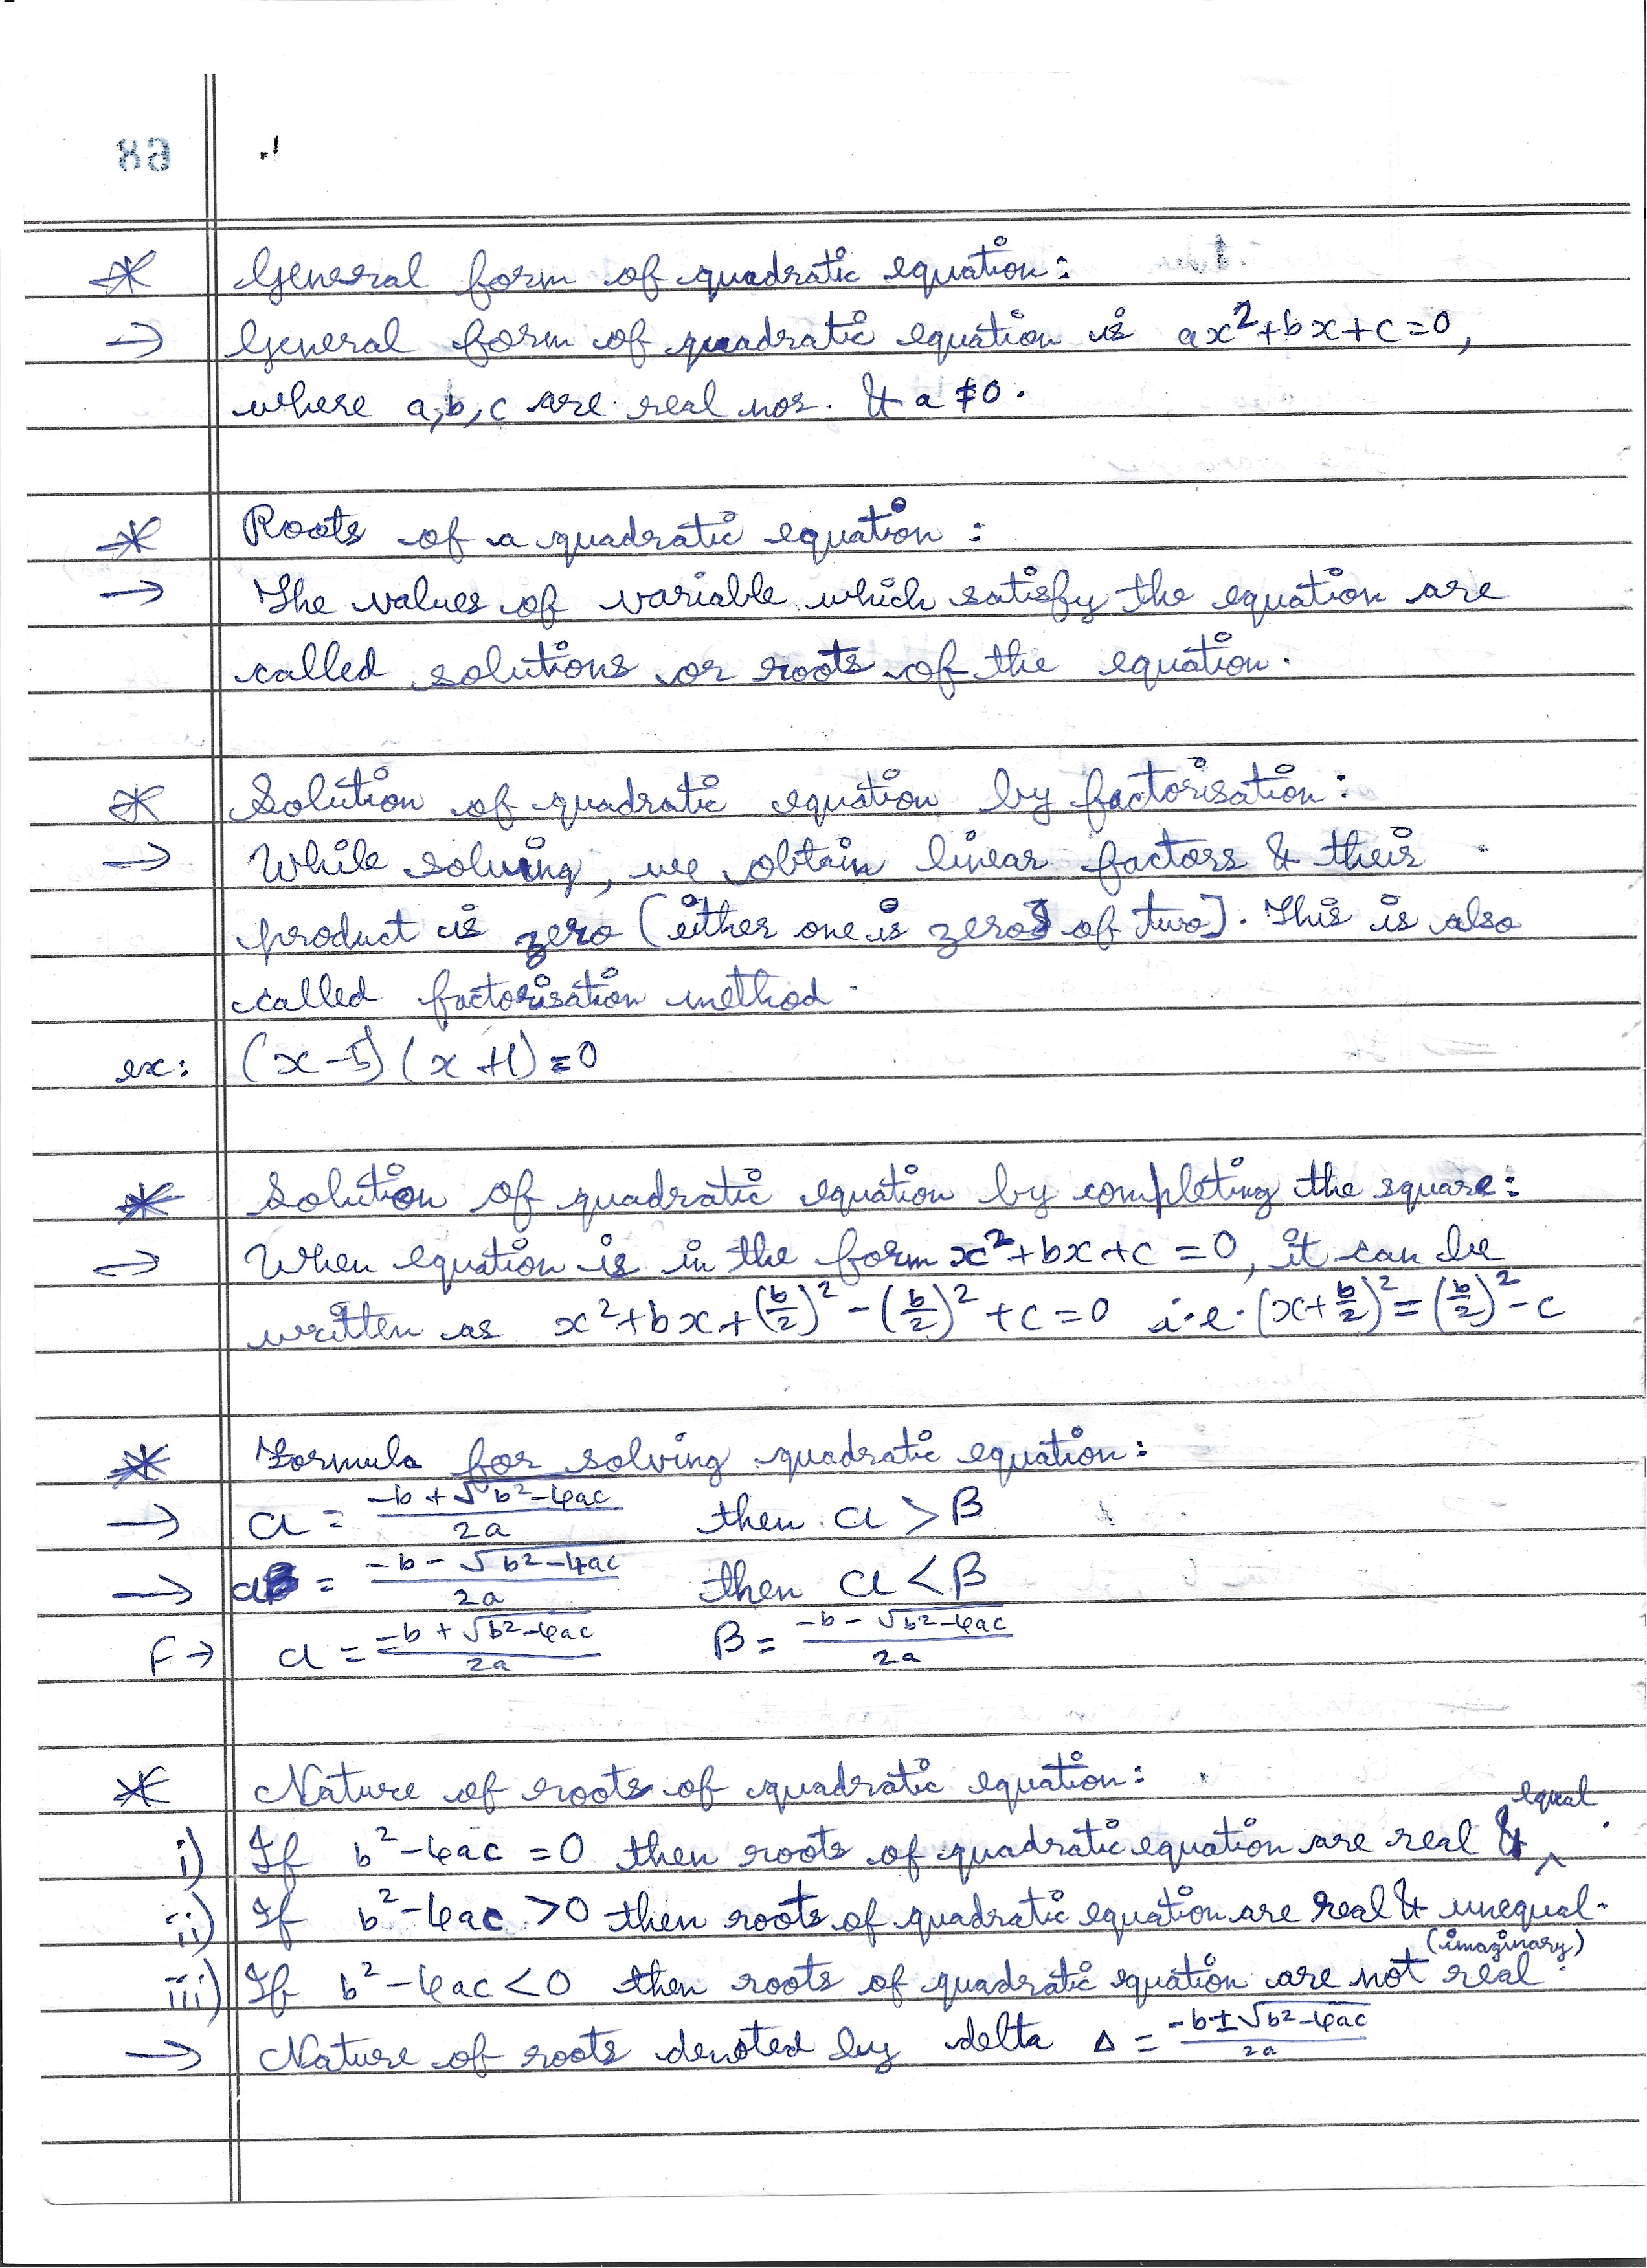 * General form of quadratic equation:
→ General form of quadratic equation is ax²+bx+c=0,
where a,b,c are real nos. & a ≠0.
* Roots of a quadratic equation:
→ The values of variable which satisfy the equation are
called solutions or roots of the equation.
* Solution of quadratic equation by factorisation:
→ While solving, we obtain linear factors & their
product is zero (either one is zero) of two]. This is also
called factorisation method.
ex: (x-5)(x+1)=0
* Solution of quadratic equation by completing the square:
→ When equation is in the form x²+bx+c=0, it can be
written as x²+bx+(b/2)²-(b/2)²+c=0 i.e. (x+b/2)²=(b/2)²-c
* Formula for solving quadratic equation:
→ α = (-b+√b²-4ac)/2a then α > β
→ αβ = (-b-√b²-4ac)/2a then α < β
F→ α = (-b+√b²-4ac)/2a β = (-b-√b²-4ac)/2a
* Nature of roots of quadratic equation:
i) If b²-4ac=0 then roots of quadratic equation are real & equal
ii) If b²-4ac>0 then roots of quadratic equation are real & unequal.
iii) If b²-4ac<0 then roots of quadratic equation are not real. (imaginary)
→ Nature of roots denoted by delta Δ = (-b±√b²-4ac)/2a